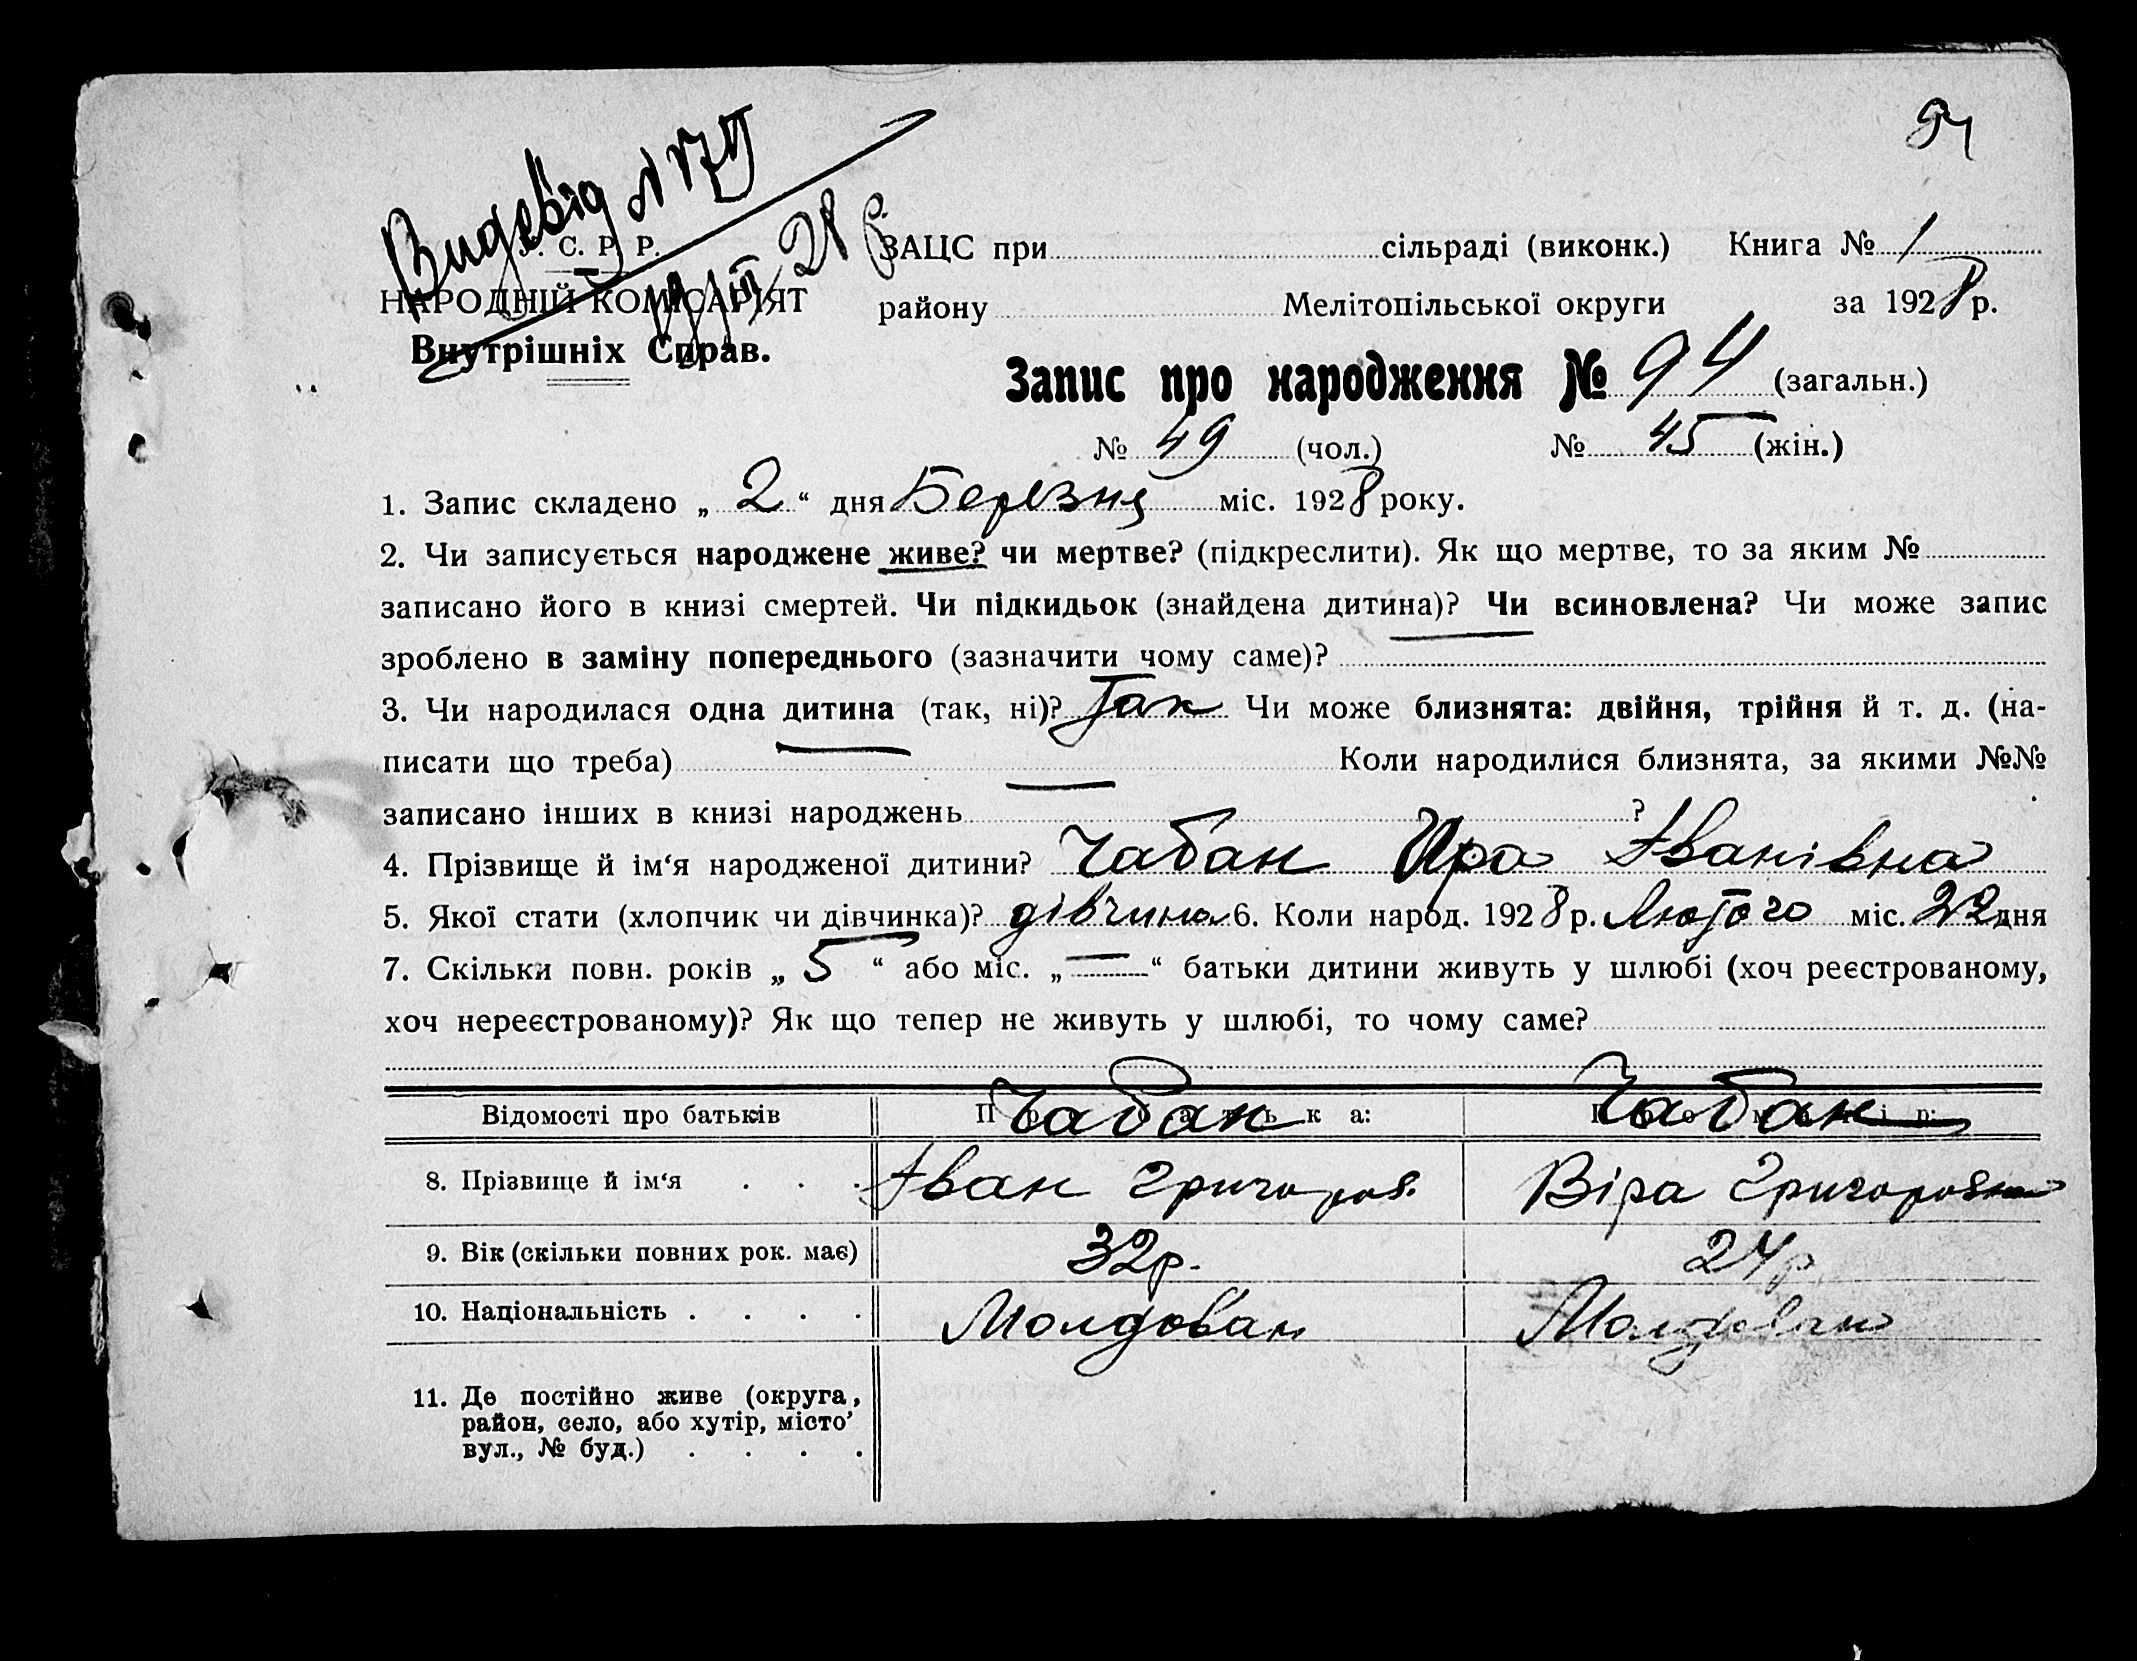 94
Вид. від № 171
С. Р. Р.
28 р.
НАРОДНІЙ КОМІСАРІЯТ
Внутрішніх Справ.
ЗАЦС при сільраді (виконк.) Книга № 1
району Мелітопільської округи за 1928 р.
Запис про народження № 94 (загальн.)
№ 49 (чол.) № 45 (жін.)
1. Запис складено „ 2 “ дня Березня міс. 1928 року.
2. Чи записується народжене живе? чи мертве? (підкреслити). Як що мертве, то за яким №
записано його в книзі смертей. Чи підкидьок (знайдена дитина)? Чи всиновлена? Чи може запис
зроблено в заміну попереднього (зазначити чому саме)? —
3. Чи народилася одна дитина (так, ні)? Так Чи може близнята: двійня, трійня й т. д. (на-
писати що треба) — Коли народилися близнята, за якими №№
записано інших в книзі народжень — ?
4. Прізвище й ім‘я народженої дитини? Чабан Ира Іванівна
5. Якої стати (хлопчик чи дівчинка)? дівчина 6. Коли народ. 1928 р. Лютого міс. 22 дня
7. Скільки повн. років „ 5 “ або міс. „ — “ батьки дитини живуть у шлюбі (хоч реєстрованому,
хоч нереєстрованому)? Як що тепер не живуть у шлюбі, то чому саме?
Відомості про батьків Чабан Чабан
8. Прізвище й ім‘я . . . Іван Григоров. Віра Григоровна
9. Вік (скільки повних рок. має) 32 р. 24 р
10. Національність . . . . Молдован Молдован
11. Де постійно живе (округа,
район, село, або хутір, місто’
вул., № буд.) . . . .